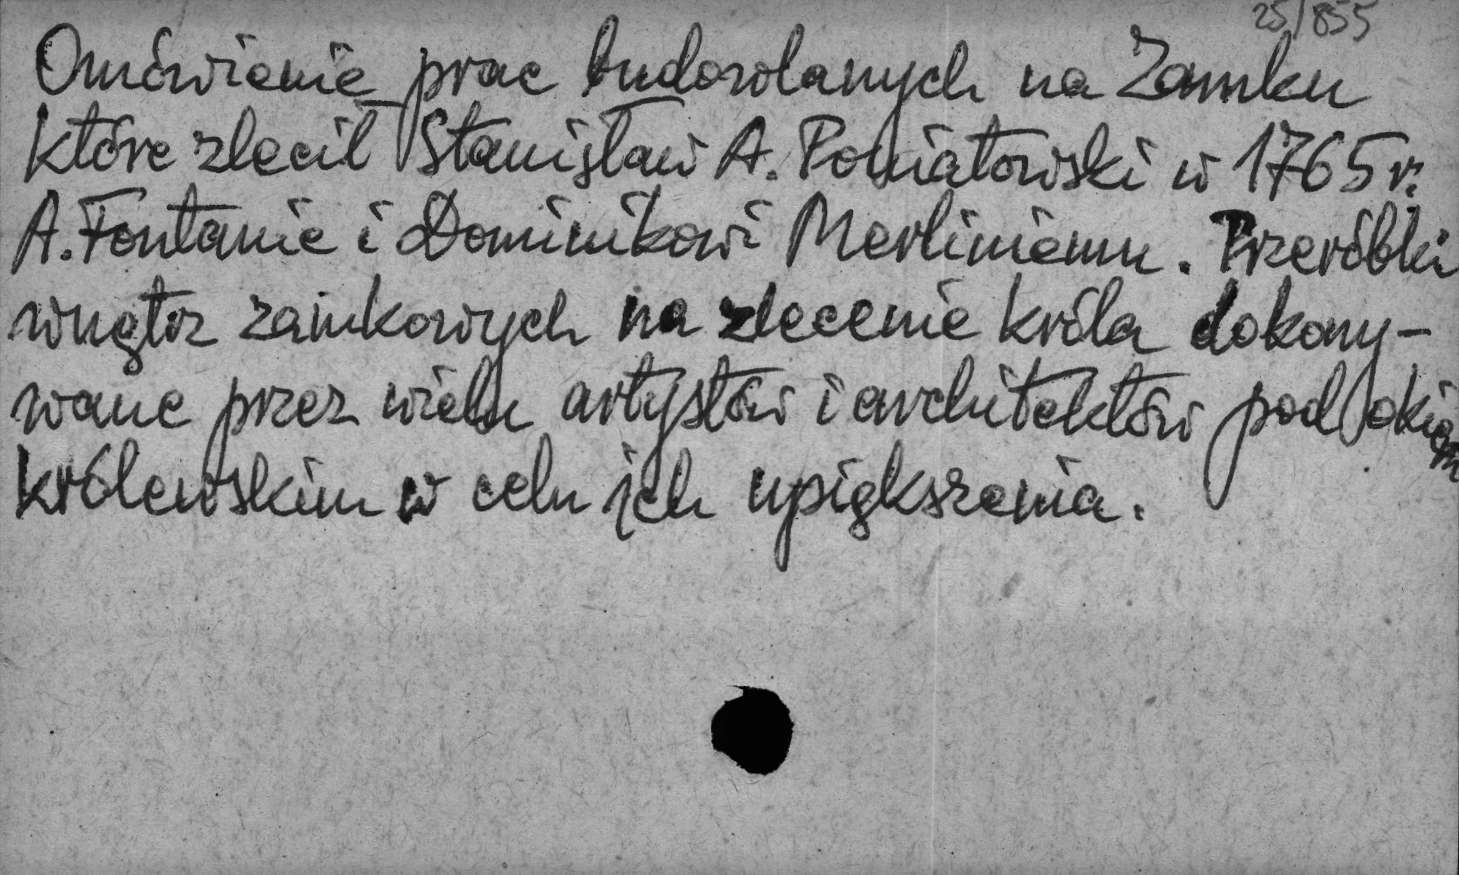 25/855
Omówienie prac budowlanych na Zamku
które zlecił Stanisław A. Poniatowski w 1765 r.
A. Fontanie i Dominikowi Merliniemu. Przeróbki
wnętrz zamkowych na zlecenie króla dokony-
wane przez wielu artystów i architektów pod okiem
królewskim w celu ich upiększenia.